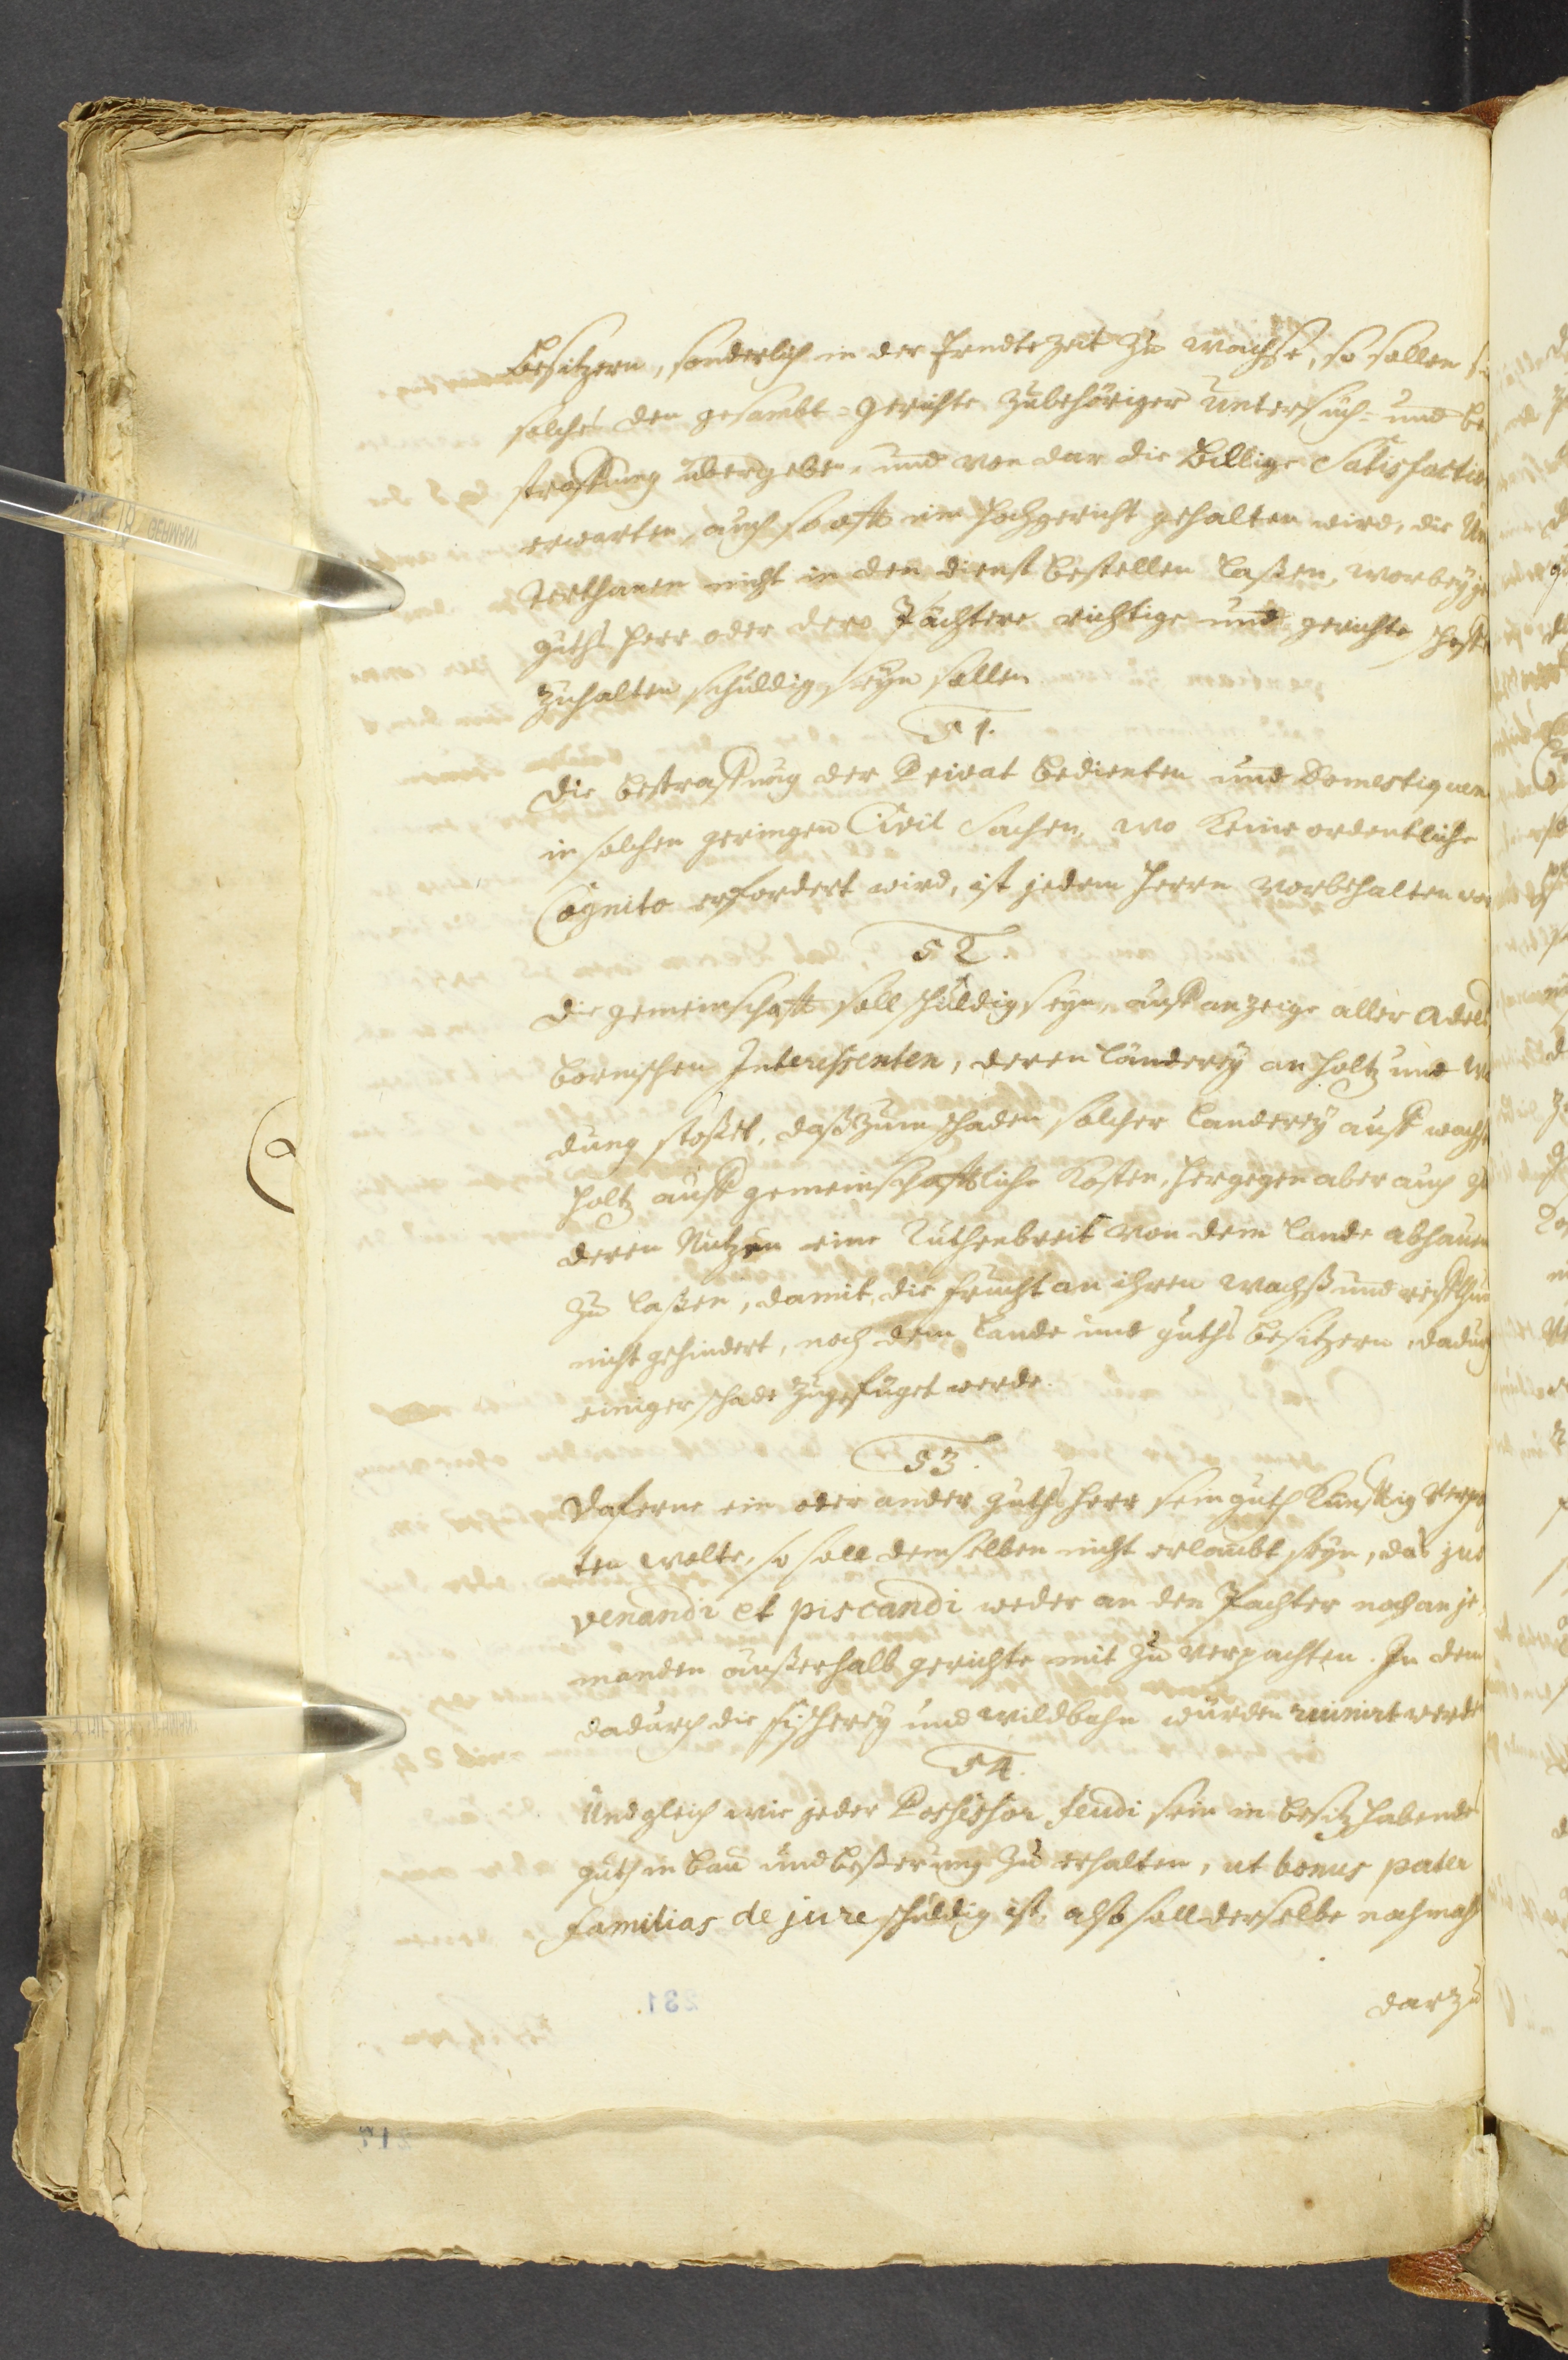 Besitzern, sonderlich in der Erndte Zeit zu wachse, so sollen
solches den gesambt-Gerichte zubehöriger untersuch- und be
straffung übergeben, und von dar die Billige Satisfactio
erwarten, auch so offt ein Hochgericht gehalten wird, die Un
terthanen nicht in den dienst bestellen laßen, worbey
guths herr oder dero Pächtere richtige und gerichte
zuhalten schuldig seyn sollen
51.
Die bestraffung der Privat bedienten und Domestiquen
in solchen geringen Civil Sachen, wo keine ordentliche
Cognito erfordert wird, ist jedem Herrn vorbehalten
52.
Die gemeinschafft soll schuldig seyn, auff anzeige aller Adels
bornischen Interessenten, deren Länderey an holtz und
dung stoßet, daß zum schaden solcher Länderey auff wachs
holtz auff gemeinschafftliche Kosten, hergegen aber auch zu
deren Nutzen eine Ruthenbreit von dem Lande abhauen
zu laßen, damit die frucht an ihren wachß und
nicht gehindert, noch dem Lande und guths besitzern, dadurch
einiger schade zugefüget werde.
53.
Daferne ein oder ander guths herr sein guth künfftig verpa
ten wolte, so soll demselben nicht erlaubt seyn, das jus
venandi et piscandi weder an den Pachter noch an je-
manden außerhalb gerichte mit zu verpachten. In dem
dadurch die fischerey und wildbahn würden ruinirt werde
54.
Und gleich wie jeder Possessor feudi sein in besitz habende
guth in bau und beßerung zu erhalten, ut bonus pater
familias de jure schuldig ist, also soll derselbe nochmahls
darzu